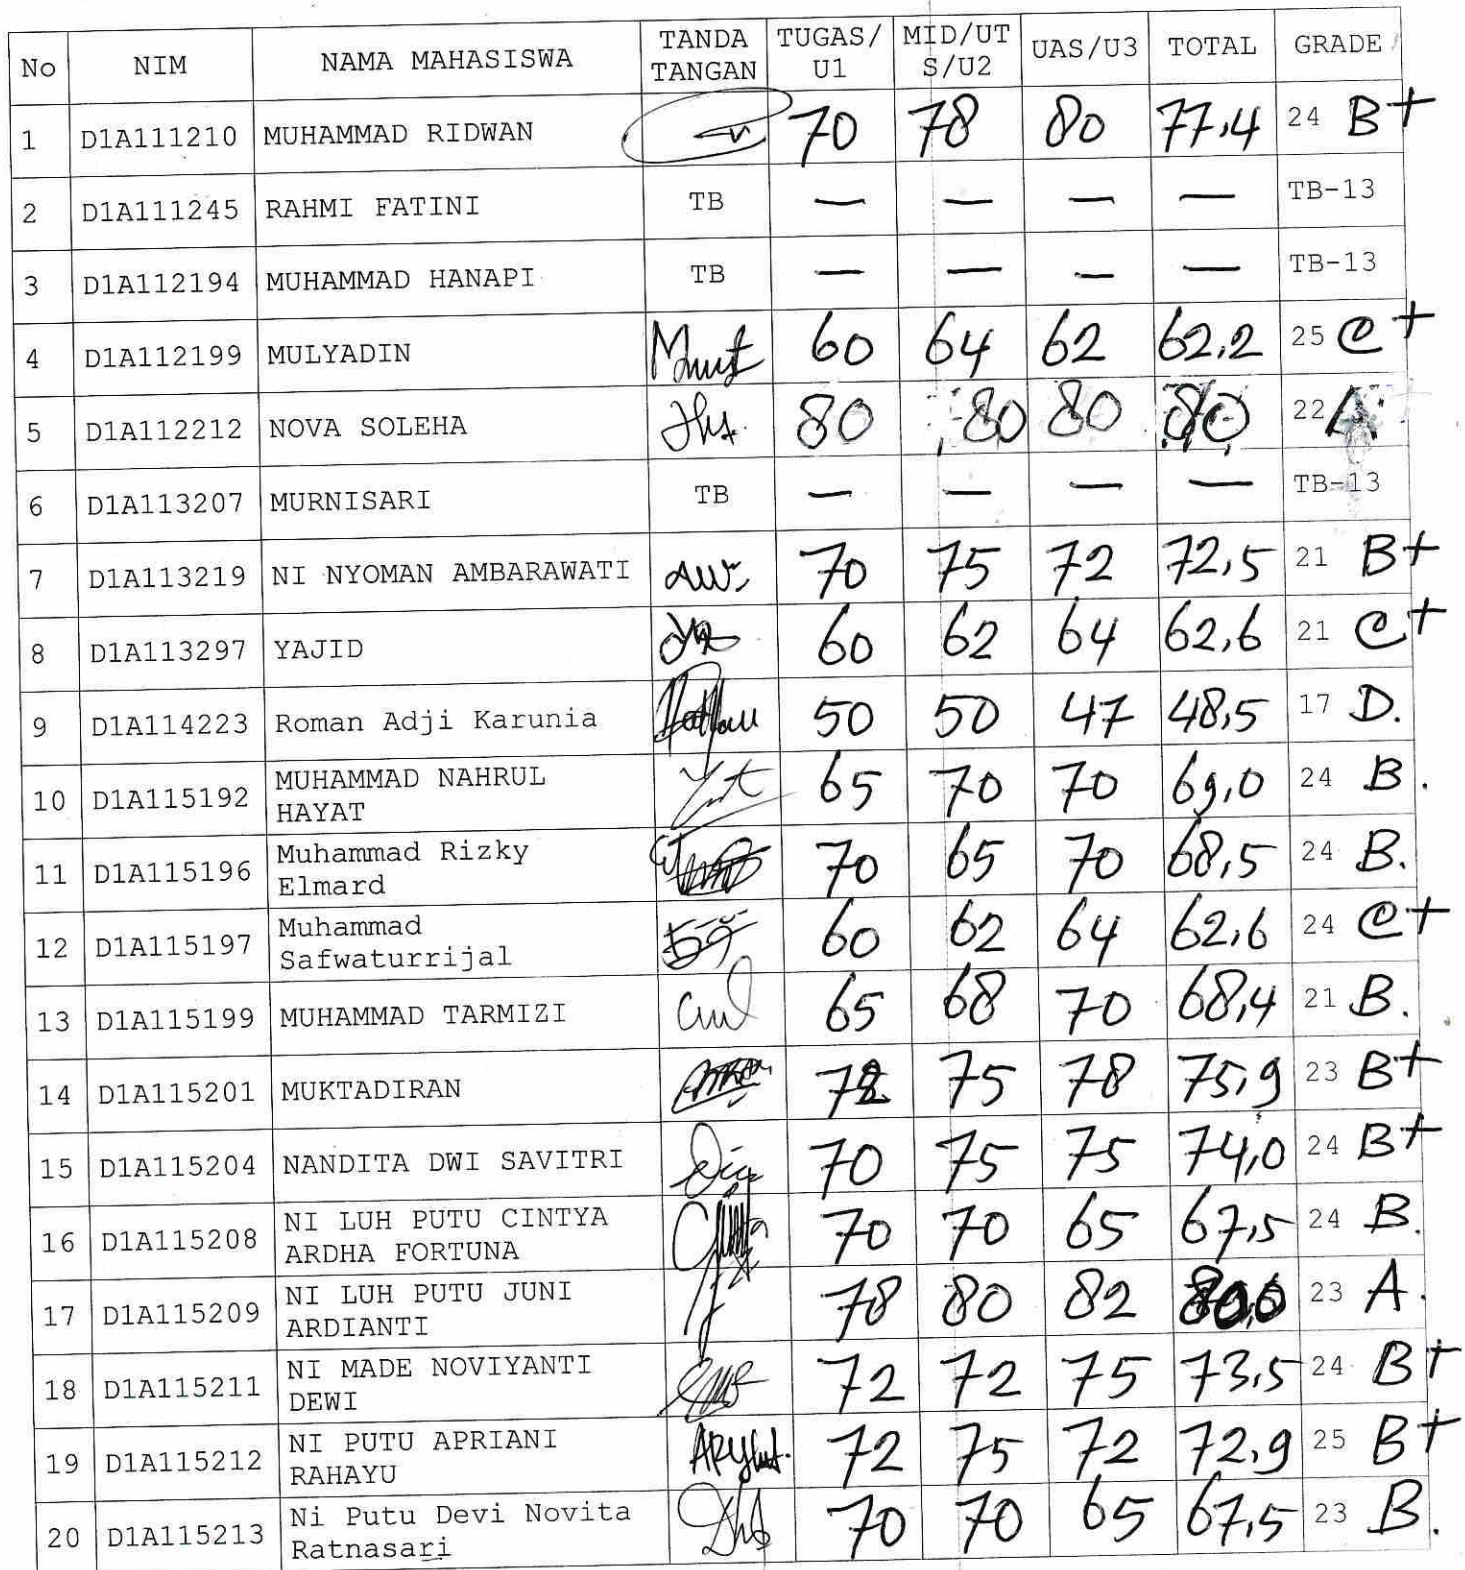 No NIM NAMA MAHASISWA TANDA TANGAN TUGAS/U1 MID/UTS/U2 UAS/U3 TOTAL GRADE
1 D1A111210 MUHAMMAD RIDWAN 70 78 80 77,4 24 B+
2 D1A111245 RAHMI FATINI TB — — — — TB-13
3 D1A112194 MUHAMMAD HANAPI TB — — — — TB-13
4 D1A112199 MULYADIN 60 64 62 62,2 25 C+
5 D1A112212 NOVA SOLEHA 80 80 80 80 22 A
6 D1A113207 MURNISARI TB — — — — TB-13
7 D1A113219 NI NYOMAN AMBARAWATI 70 75 72 72,5 21 B+
8 D1A113297 YAJID 60 62 64 62,6 21 C+
9 D1A114223 Roman Adji Karunia 50 50 47 48,5 17 D.
10 D1A115192 MUHAMMAD NAHRUL
HAYAT 65 70 70 69,0 24 B.
11 D1A115196 Muhammad Rizky
Elmard 70 65 70 68,5 24 B.
12 D1A115197 Muhammad
Safwaturrijal 60 62 64 62,6 24 C+
13 D1A115199 MUHAMMAD TARMIZI 65 68 70 68,4 21 B.
14 D1A115201 MUKTADIRAN 72 75 78 75,9 23 B+
15 D1A115204 NANDITA DWI SAVITRI 70 75 75 74,0 24 B+
16 D1A115208 NI LUH PUTU CINTYA
ARDHA FORTUNA 70 70 65 67,5 24 B.
17 D1A115209 NI LUH PUTU JUNI
ARDIANTI 78 80 82 80,6 23 A.
18 D1A115211 NI MADE NOVIYANTI
DEWI 72 72 75 73,5 24 B+
19 D1A115212 NI PUTU APRIANI
RAHAYU 72 75 72 72,9 25 B+
20 D1A115213 Ni Putu Devi Novita
Ratnasari 70 70 65 67,5 23 B.